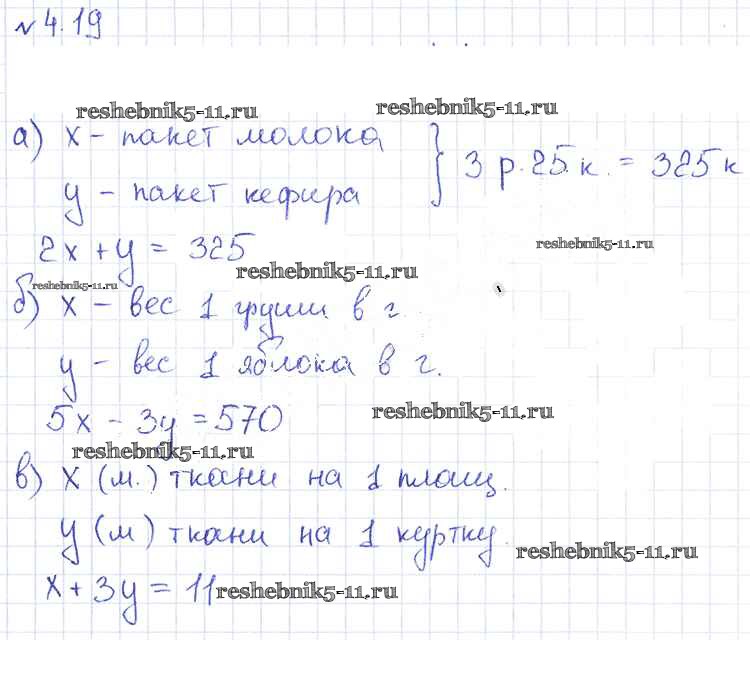 № 4.19
reshebnik5-11.ru reshebnik5-11.ru
а) х - пакет молока } 3 р. 25 к. = 325 к
у - пакет кефира
2х + у = 325 reshebnik5-11.ru
reshebnik5-11.ru
reshebnik5-11.ru
б) х - вес 1 груши в г.
у - вес 1 яблока в г.
5х - 3у = 570 reshebnik5-11.ru
reshebnik5-11.ru
в) х (м.) ткани на 1 плащ.
у (м) ткани на 1 куртку.
reshebnik5-11.ru
х + 3у = 11 reshebnik5-11.ru